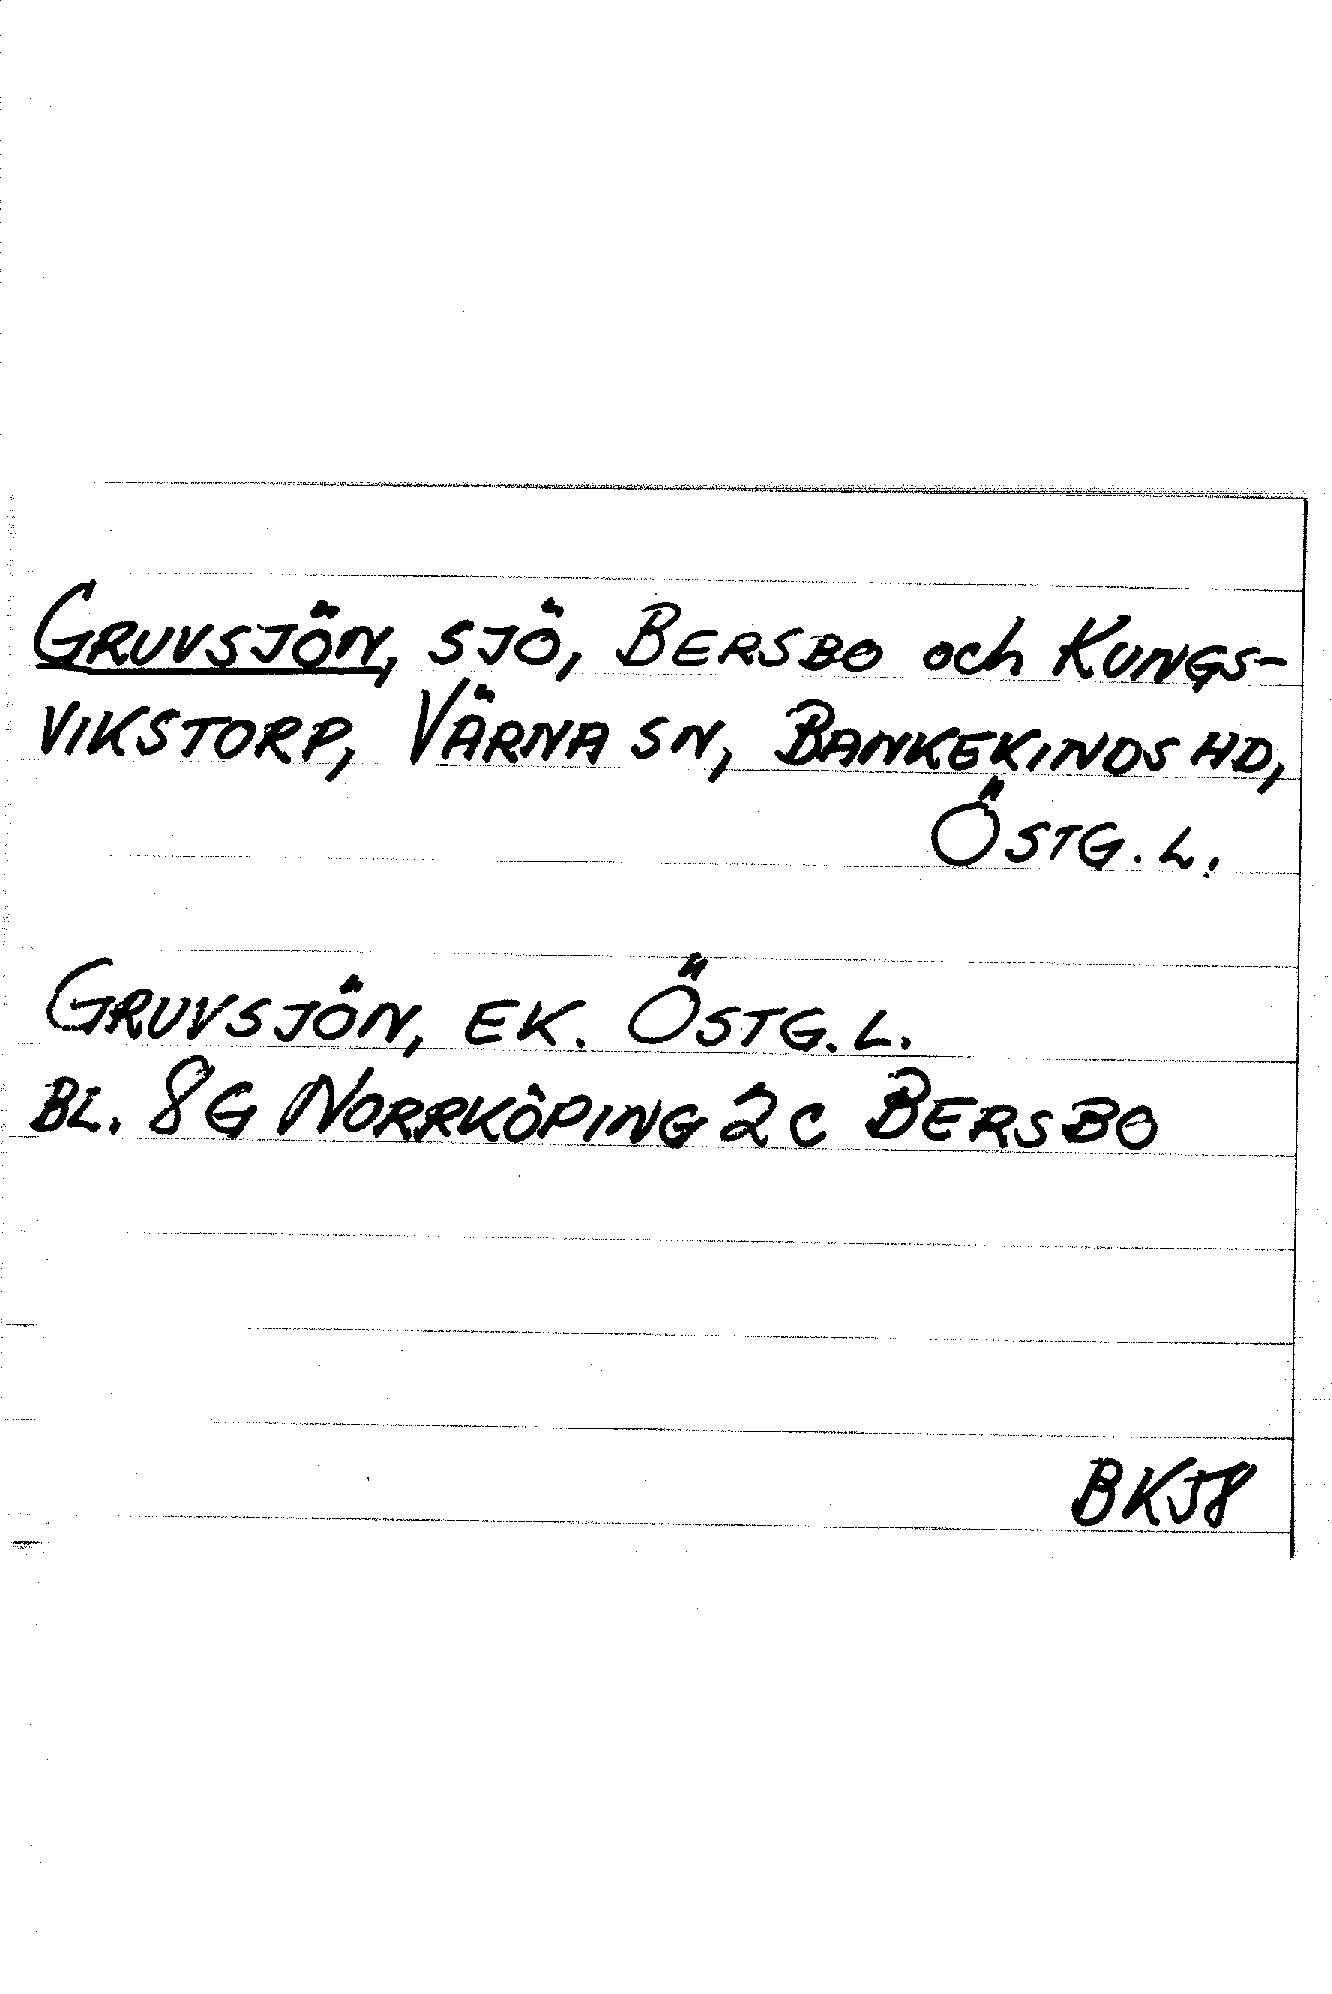 GRUVSJÖN, SJÖ, BERSBO och KUNGS-
VIKSTORP, VÄRNA SN, BANKEKINDS HD,
ÖSTG. L.
GRUVSJÖN, EK. ÖSTG. L.
BL. 8G NORRKÖPING 2C BERSBO